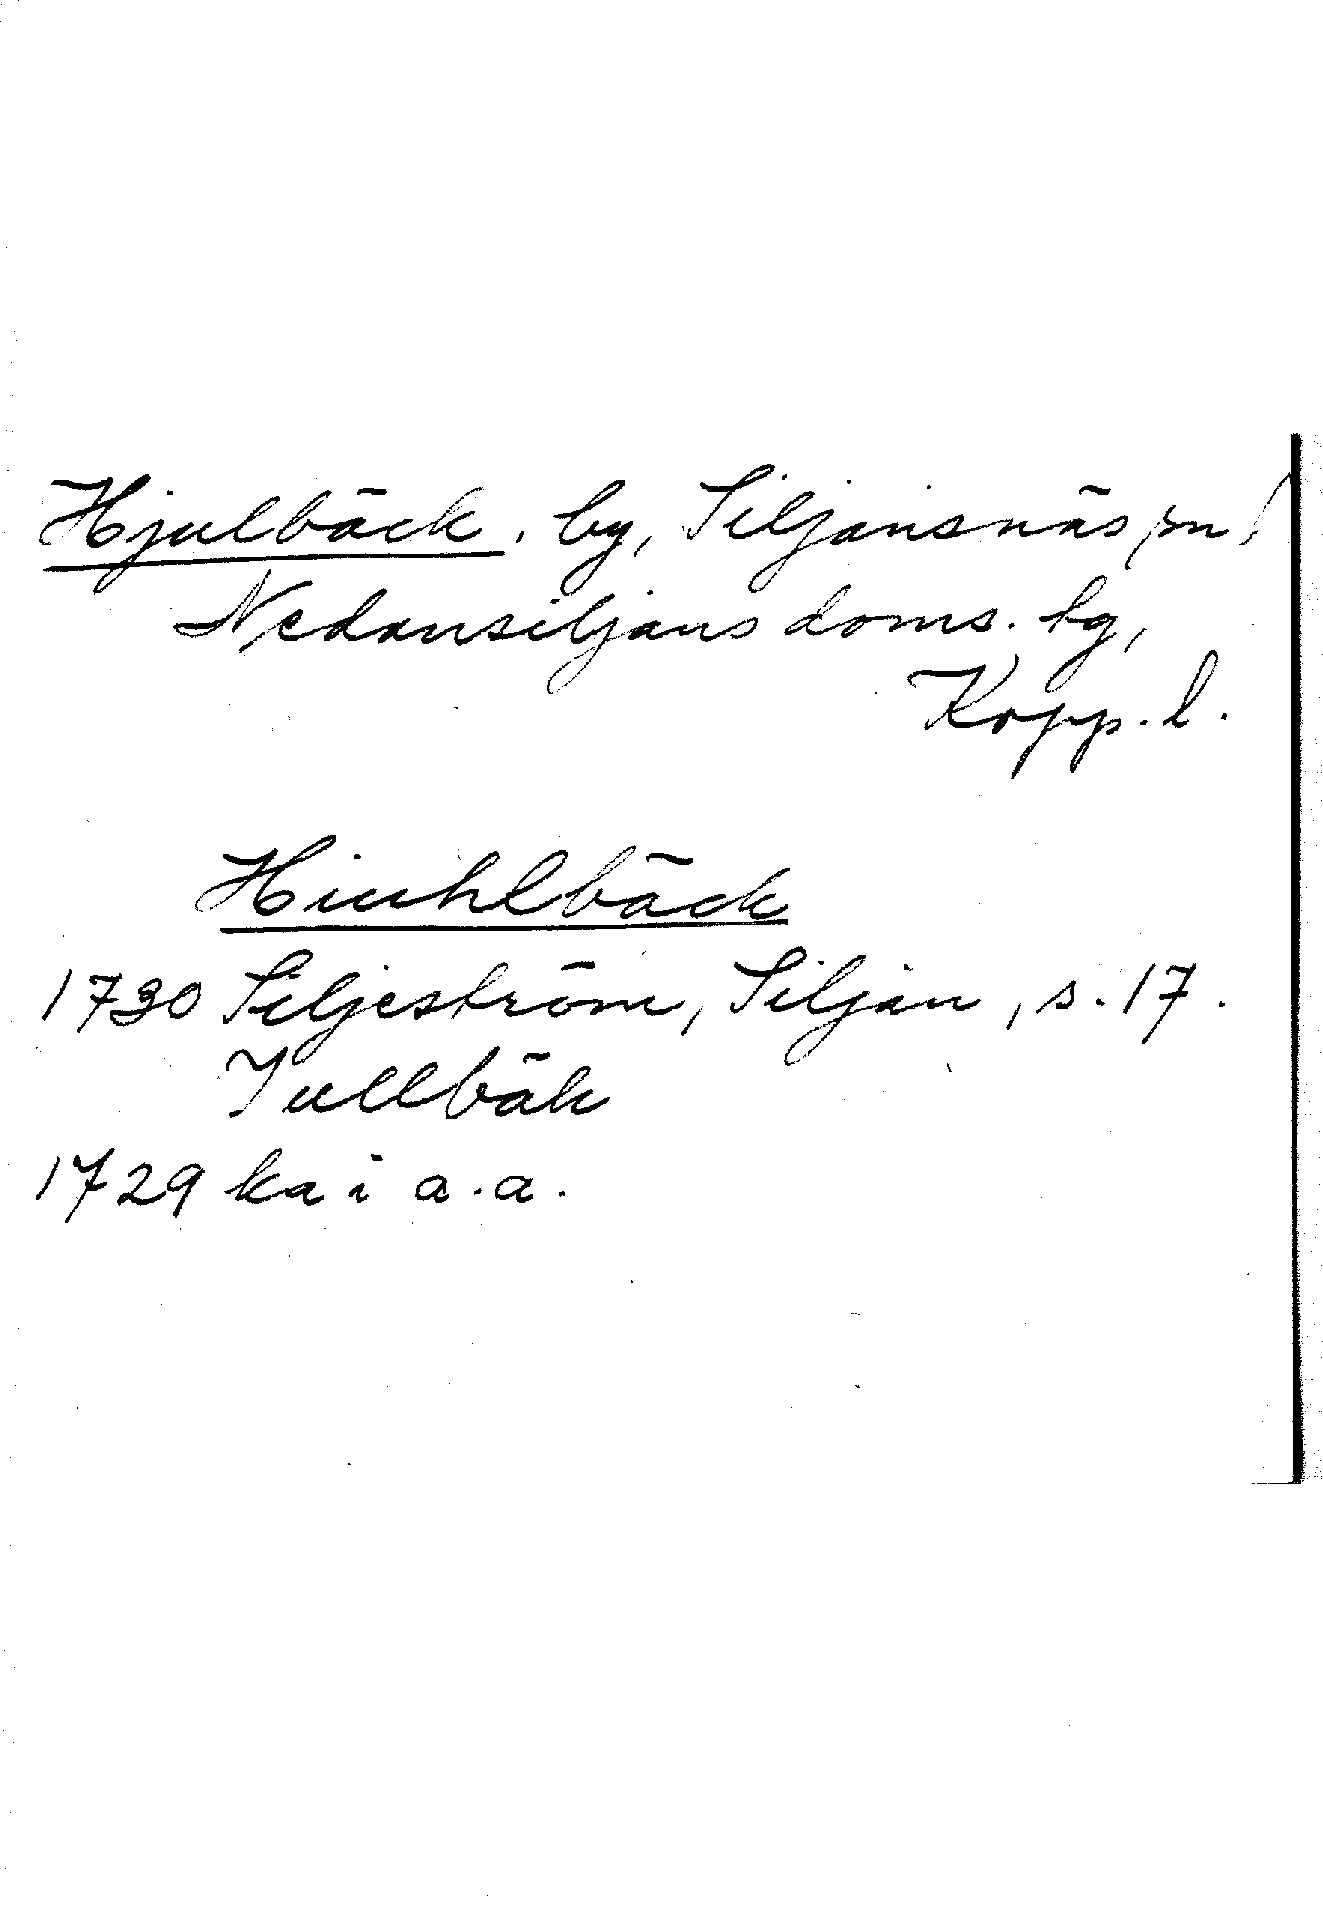 Hjulbäck. by, Siljansnäs sn,
Nedansiljans doms. bg,
Kopp. l.
Hiuhlbäck
1730 Siljeström, Siljan, s. 17.
Jullbäk
1729 ka i a.a.